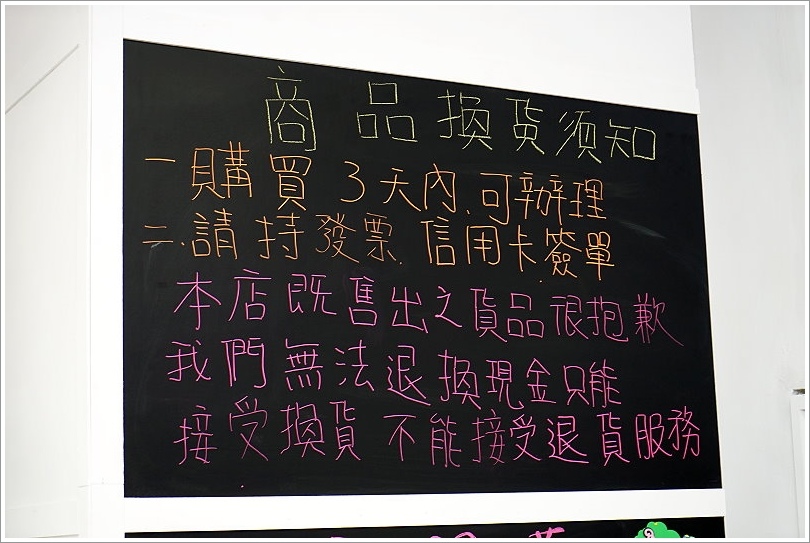 商品換貨須知
一購買3天內.可辦理
二.請持發票.信用卡簽單
本店既售出之貨品很抱歉
我們無法退換現金只能
接受換貨不能接受退貨服務